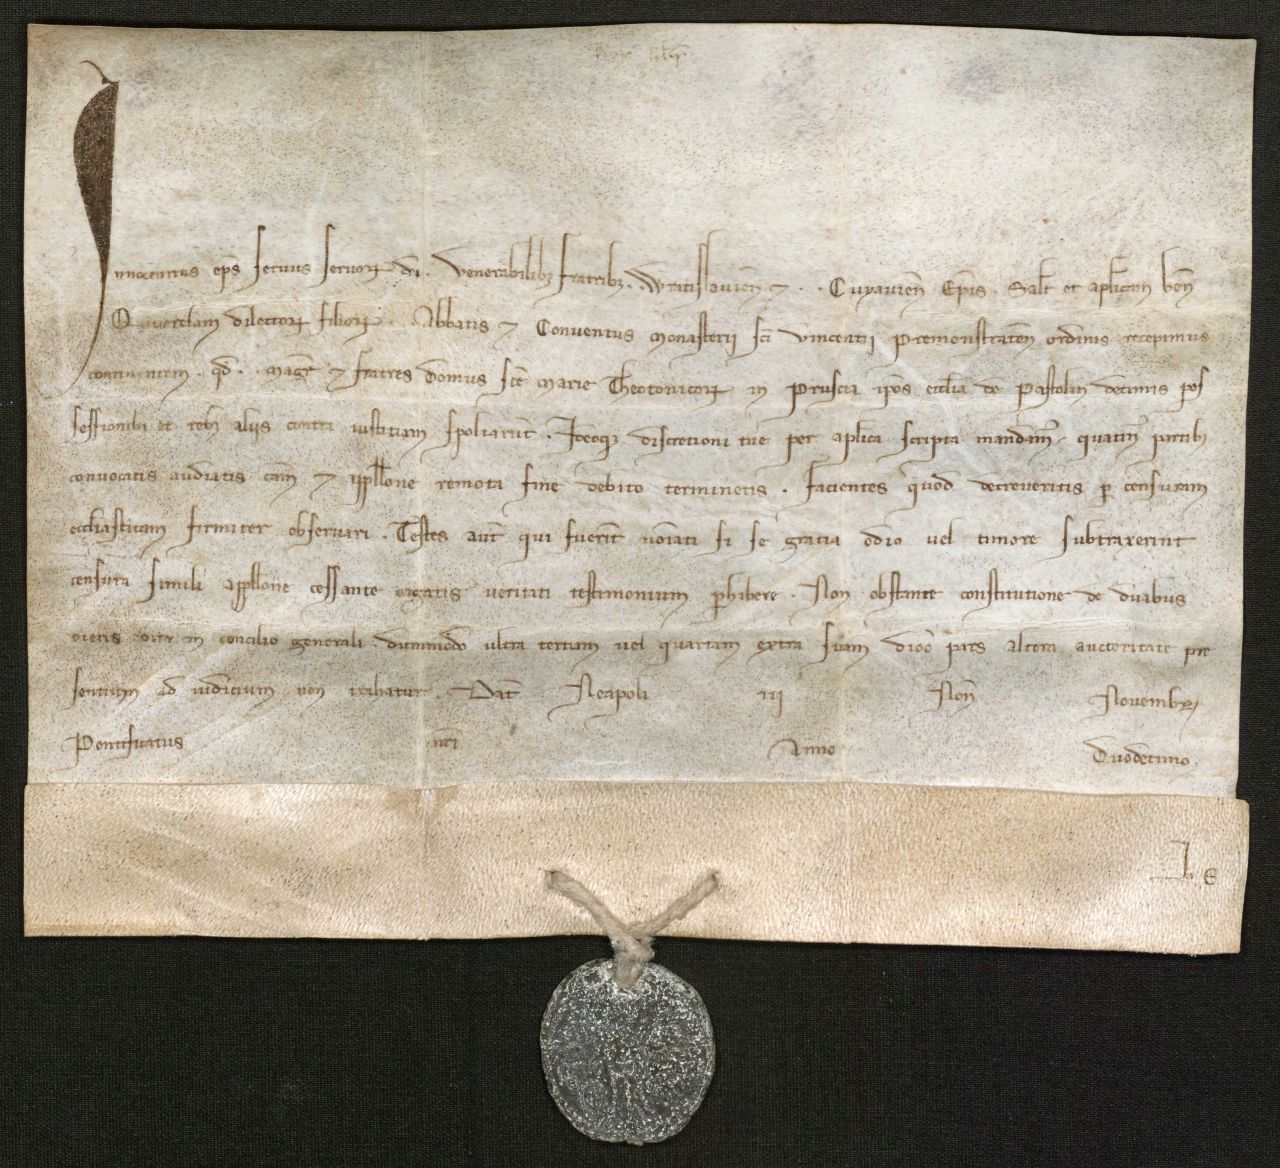 Innocentius ep̄s servus servoꝝ dei. Venerabilibꝫ fratribꝫ .. Wratislavien̄ ⁊ .. Cuyavien̄ Ep̄is. Salt̄ et aplicam ben̄
Querelam dilectoꝝ filioꝝ .. Abbatis ⁊ Conventus Monasterii sc̄i Vincentii Premonstraten̄ ordinis recepimus
continentem. qd̄ .. Magr̄ ⁊ fratres domus sc̄e Marie Theotonicoꝝ in Pruscia ip̄os ecclia de Pastolin decimis pos
sessionibꝫ et rebꝫ aliis contra iustitiam spoliarūt. Ideoqꝫ discretioni tue per aplica scripta mandam᷒. quatin᷒ partibꝫ
convocatis audiatis cām ⁊ appllone remota fine debito terminetis. facientes quod decreveritis p̱ censuram
ecclīasticam firmiter observari. Testes aūt qui fuerīt noīati si se gratia odio vel timore subtraxerint
censura simili appllone cessante cogatis veritati testimonium p̱hibere. Non obstante constitutione de duabus
dietis edita in concilio generali. dummodo ultra tertiam vel quartam extra suam dioc̄ pars altera auctoritate pre
sentium ad iudicium non trahatur. Dat̄ Neapoli iii Non̄ Novembꝝ
Pontificatus nr̄i Anno Duodecimo.